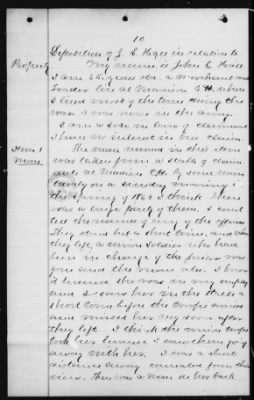 10
Deposition of J. C. Hoge in relation to
Property My name is John C. Hoge
I am 25 years old. a Merchant and
Trader live at Madison C.H. where
I lived most of the time during the
war. I was never in the army.
I am a Son in law of claimant
I have no interest in her claim
Item 1 The mare named in this item
Mare was taken from a stable of claim-
ants at Madison C.H. by some union
cavalry on a sunday morning in
the spring of 1863 I think There
was a large party of them. I cant
tell the names of any of the officers
They staid but a short time, and when
they left, a union Soldier who had
been in charge of the
gone and the mare also. I know
it because she was in my
and I seen her in the stable a
short time before the troops came
and missed her very soon after
they left. I think the union troops
took her because I saw them going
away with her. I was a short
distance away concealed from their
view. There was a man on her back